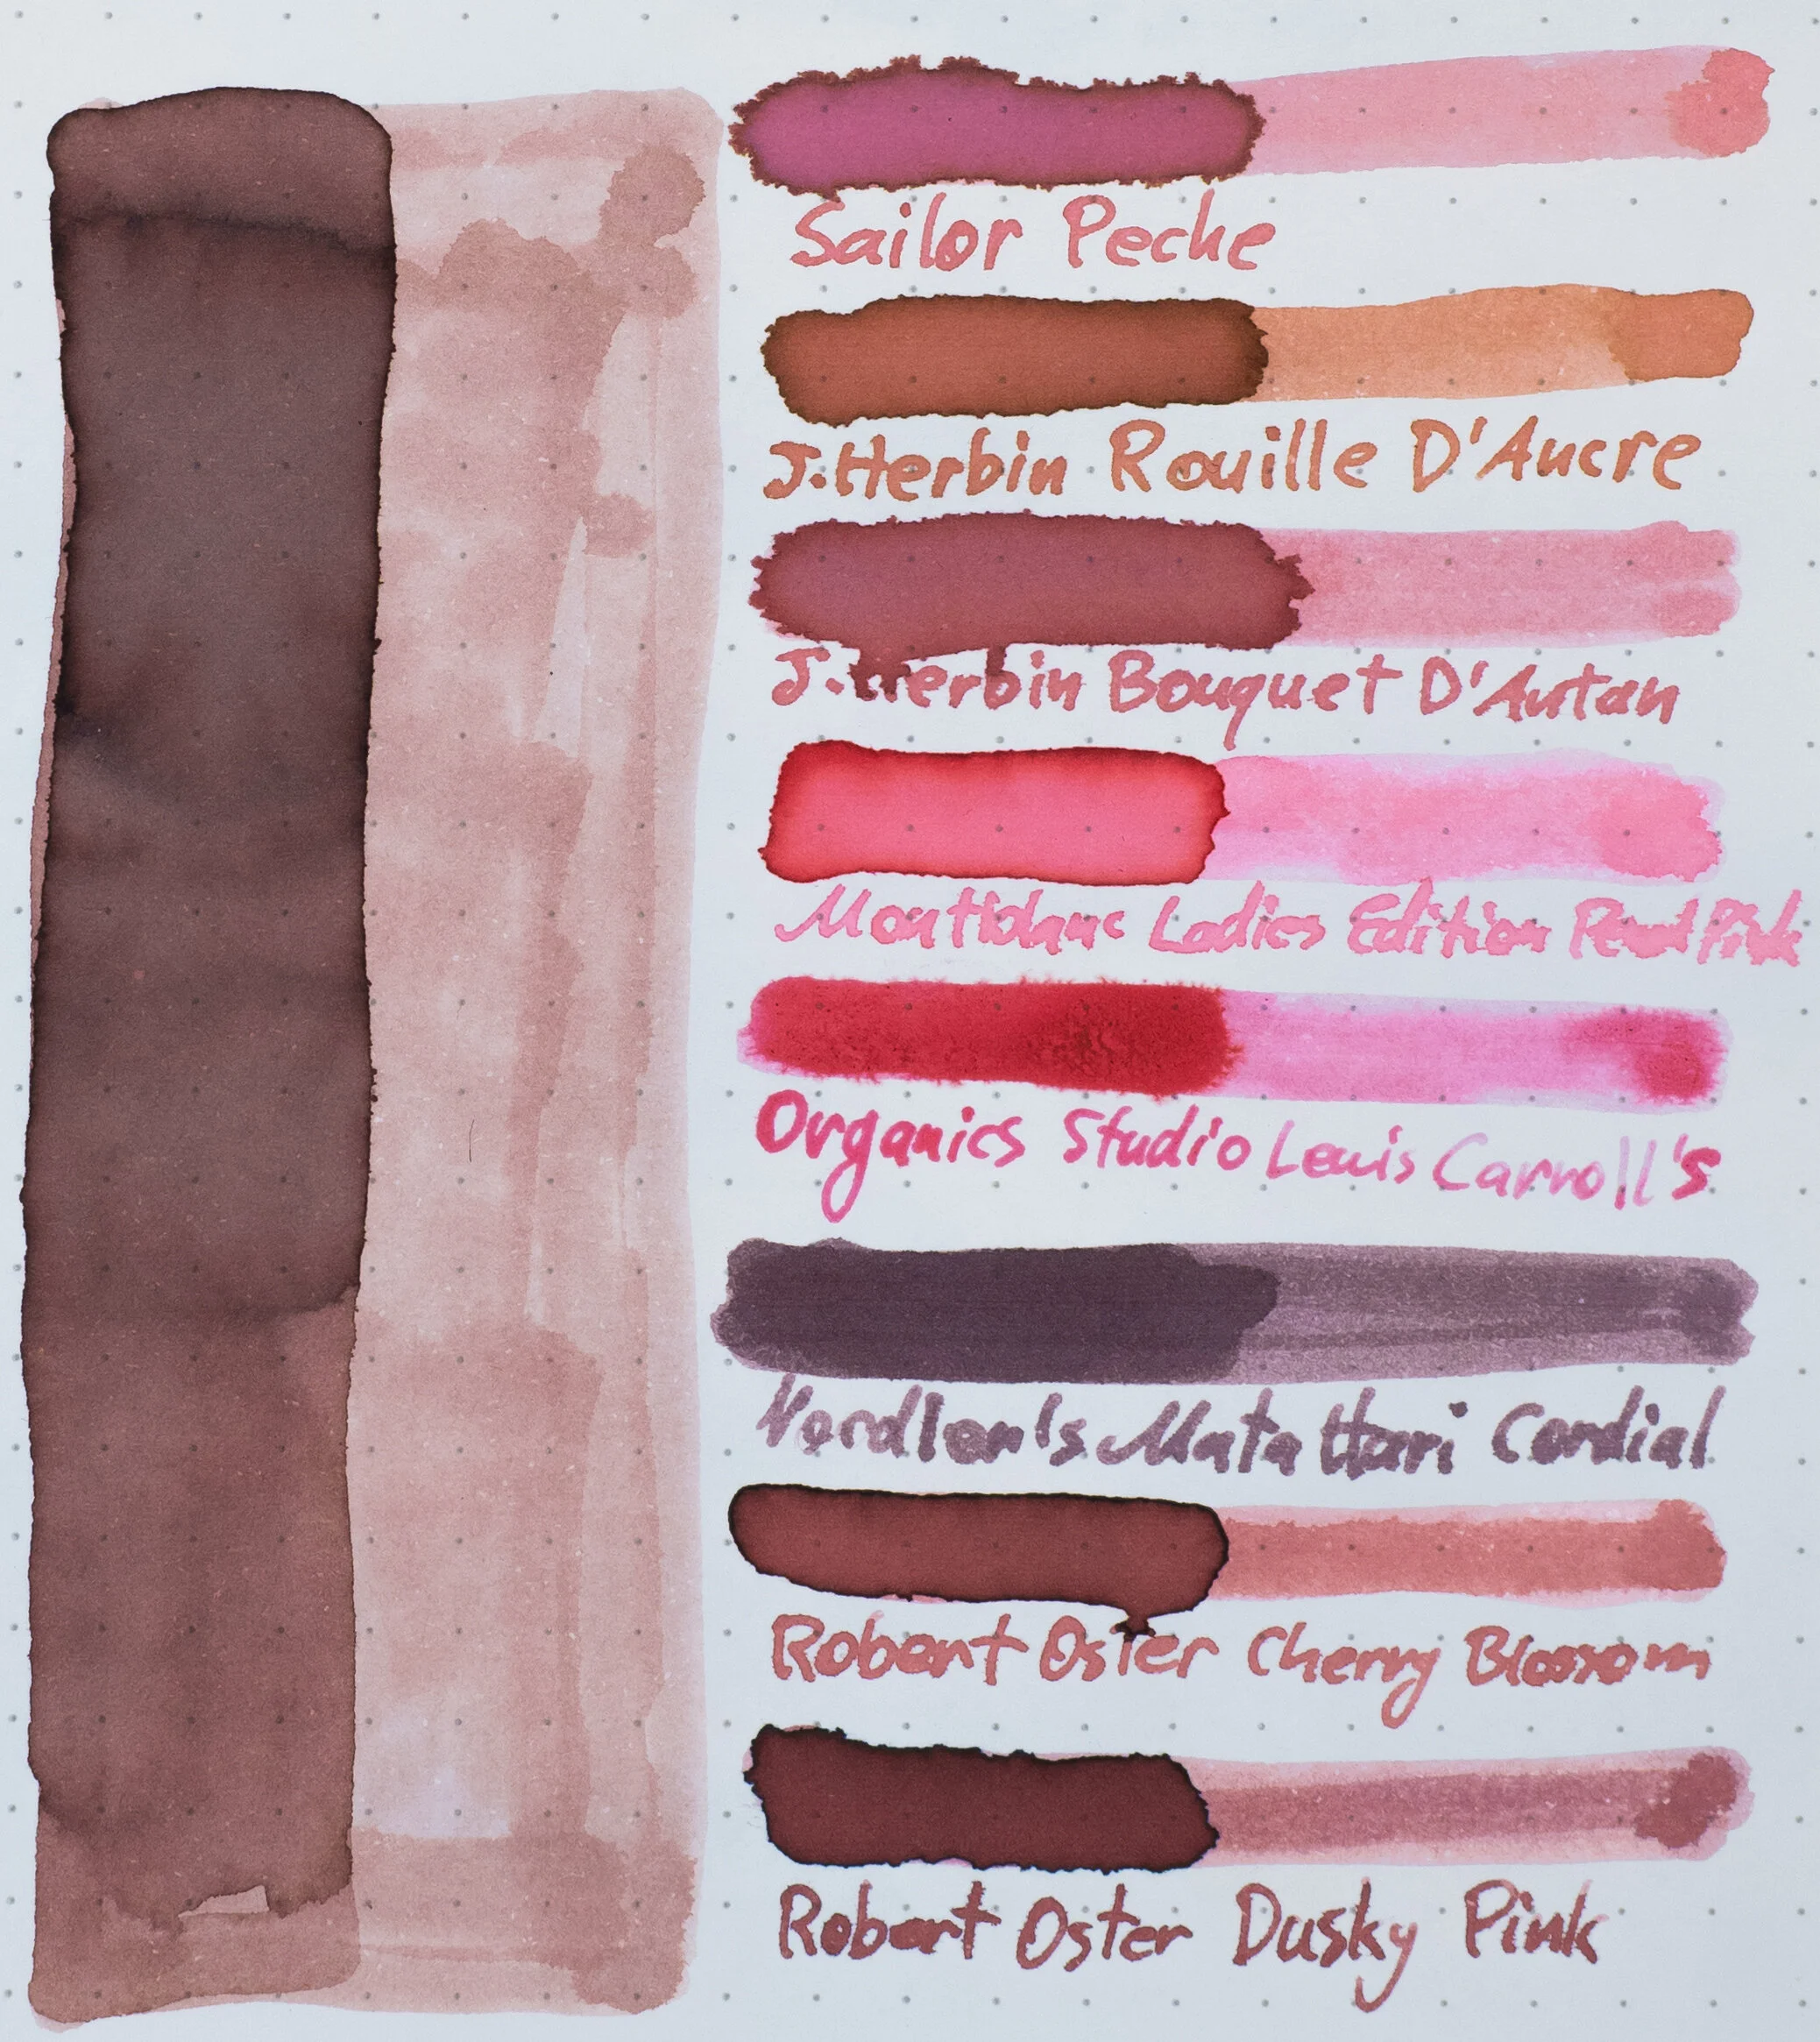 Sailor Peche
J.Herbin Rouille D'Aucre
J.Herbin Bouquet D'Antan
Montblanc Ladies Edition Pearl Pink
Organics Studio Lewis Carroll's
Mata Hari Cordial
Robert Oster Cherry Blossom
Robert Oster Dusky Pink